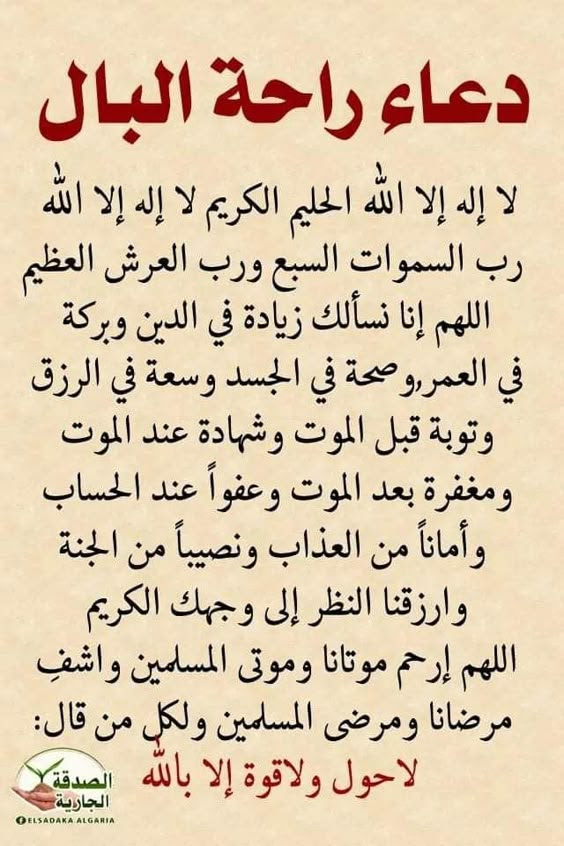 دعاء راحة البال
لا إله إلا الله الحليم الكريم لا إله إلا الله
رب السموات السبع ورب العرش العظيم
اللهم إنا نسألك زيادة في الدين وبركة
في العمر,وصحة في الجسد وسعة في الرزق
وتوبة قبل الموت وشهادة عند الموت
ومغفرة بعد الموت وعفواً عند الحساب
وأماناً من العذاب ونصيباً من الجنة
وارزقنا النظر إلى وجهك الكريم
اللهم إرحم موتانا وموتى المسلمين واشفِ
مرضانا ومرضى المسلمين ولكل من قال:
لاحول ولاقوة إلا بالله
الصدقة
الجارية
ELSADAKA ALGARIA